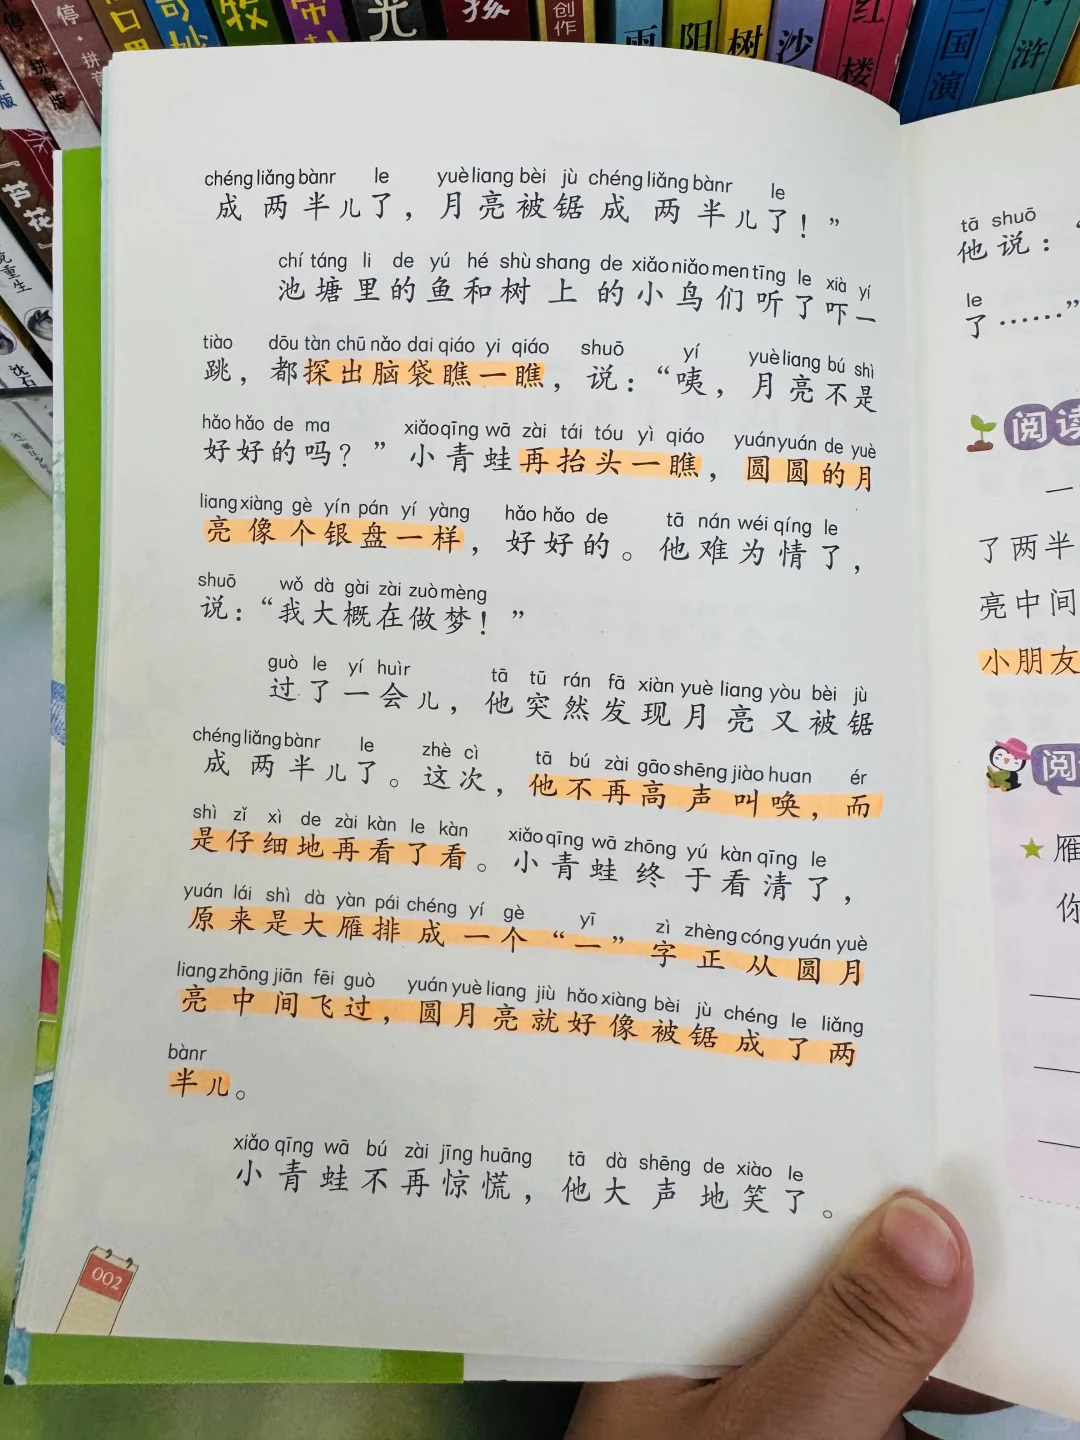 chéng liǎng bànr le yuè liang bèi jù chéng liǎng bànr le
成两半儿了，月亮被锯成两半儿了！”
chí táng li de yú hé shù shang de xiǎo niǎo men tīng le xià yí
池塘里的鱼和树上的小鸟们听了吓一
tiào dōu tàn chū nǎo dai qiáo yi qiáo shuō yí yuè liang bú shì
跳，都探出脑袋瞧一瞧，说：“咦，月亮不是
hǎo hǎo de ma xiǎo qīng wā zài tái tóu yì qiáo yuán yuán de yuè
好好的吗？”小青蛙再抬头一瞧，圆圆的月
liang xiàng gè yín pán yí yàng hǎo hǎo de tā nán wéi qíng le
亮像个银盘一样，好好的。他难为情了，
shuō wǒ dà gài zài zuò mèng
说：“我大概在做梦！”
guò le yí huìr tā tū rán fā xiàn yuè liang yòu bèi jù
过了一会儿，他突然发现月亮又被锯
chéng liǎng bànr le zhè cì tā bú zài gāo shēng jiào huan ér
成两半儿了。这次，他不再高声叫唤，而
shì zǐ xì de zài kàn le kàn xiǎo qīng wā zhōng yú kàn qīng le
是仔细地再看了看。小青蛙终于看清了，
yuán lái shì dà yàn pái chéng yí gè yī zì zhèng cóng yuán yuè
原来是大雁排成一个“一”字正从圆月
liang zhōng jiān fēi guò yuán yuè liang jiù hǎo xiàng bèi jù chéng le liǎng
亮中间飞过，圆月亮就好像被锯成了两
bànr
半儿。
xiǎo qīng wā bú zài jīng huāng tā dà shēng de xiào le
小青蛙不再惊慌，他大声地笑了。
002
tā shuō
他说：“
le
了……”
阅读
一
了两半
亮中间
小朋友
阅
雁
你
牧
光
孩
创作
雨
阳
树
沙
红楼
三国演
水浒
拼音版
芦花
沈石